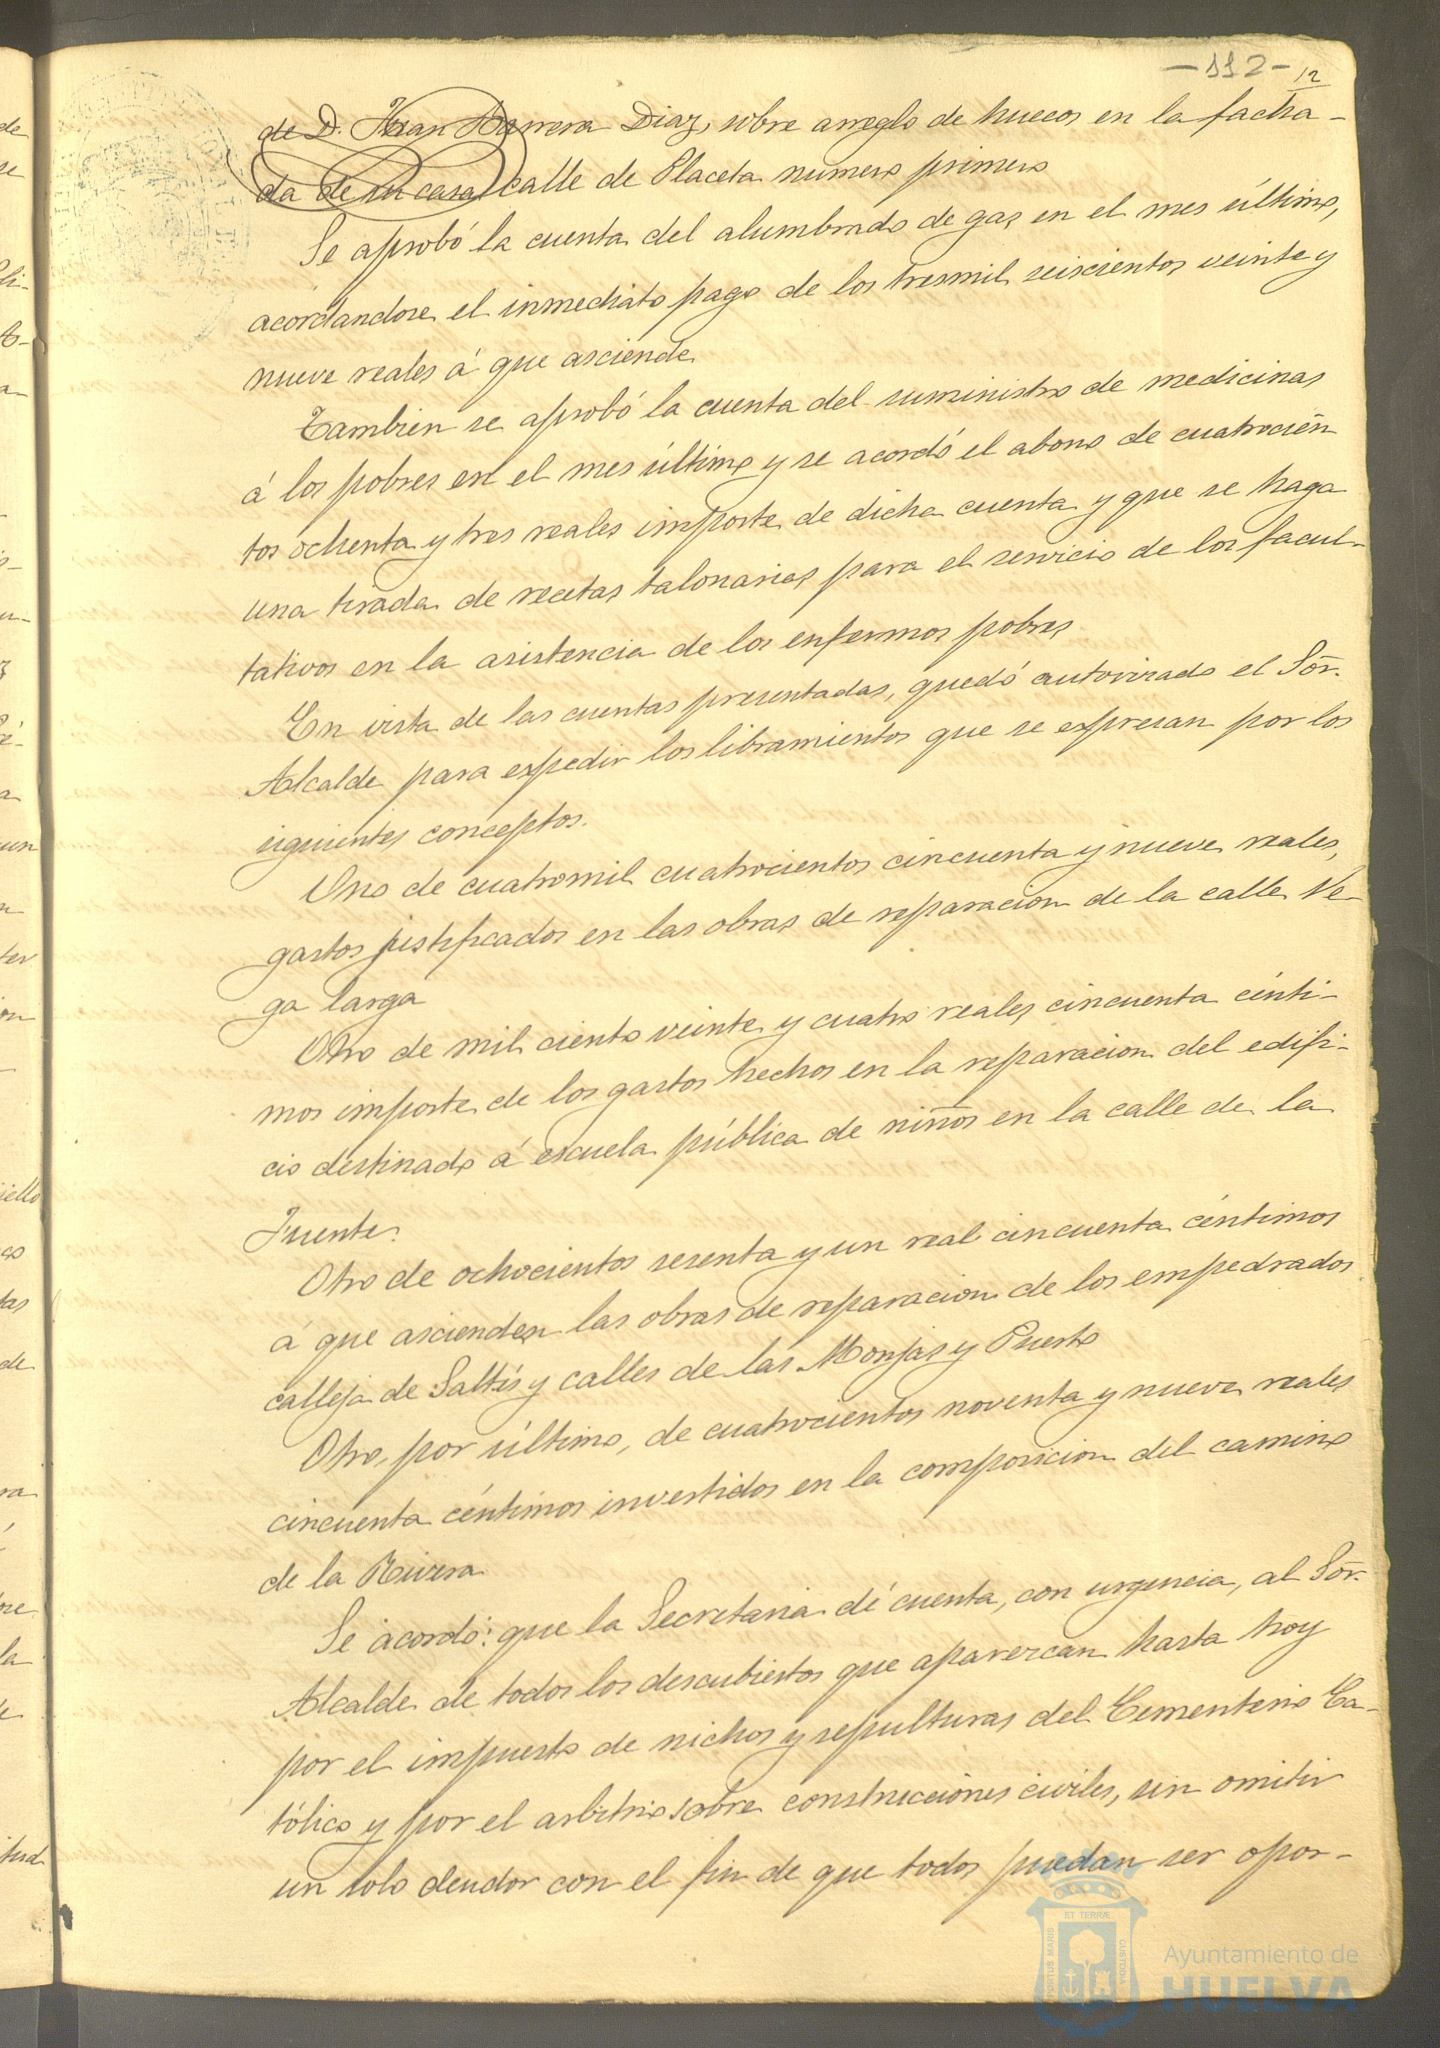 -112-
12
de D. Juan Barrera Diaz, sobre arreglo de huecos en la facha-
da de su casa calle de Placeta numero primero
Se aprobó la cuenta del alumbrado de gas, en el mes último,
acordandose el inmediato pago de los tresmil seiscientos veinte y
nueve reales á que asciende
Tambien se aprobó la cuenta del suministro de medicinas
á los pobres en el mes último y se acordó el abono de cuatrocien
tos ochenta y tres reales importe de dicha cuenta y que se haga
una tirada de recetas talonarias para el servicio de los facul-
tativos en la asistencia de los enfermos pobres
En vista de las cuentas presentadas, quedó autorizado el Sōr.
Alcalde para expedir los libramientos que se expresan por los
siguientes conceptos.
Uno de cuatromil cuatrocientos cincuenta y nueve reales,
gastos justificados en las obras de reparacion de la calle Ve-
ga larga
Otro de mil ciento veinte y cuatro reales cincuenta cénti-
mos importe de los gastos hechos en la reparacion del edifi-
cio destinado á escuela pública de niños en la calle de la
Fuente.
Otro de ochocientos sesenta y un real cincuenta céntimos
á que ascienden las obras de reparacion de los empedrados
calleja de Saltés y calles de las Monjas y Puerto
Otro, por último, de cuatrocientos noventa y nueve reales
cincuenta céntimos invertidos en la composicion del camino
de la Rivera
Se acordó: que la Secretaria dé cuenta, con urgencia, al Sōr.
Alcalde de todos los descubiertos que aparezcan hasta hoy
por el impuesto de nichos y sepulturas del Cementerio Ca-
tólico y por el arbitrio sobre construcciones civiles, sin omitir
un solo deudor con el fin de que todos puedan ser opor-
PORTUS MARIS ET TERRÆ CUSTODIA
Ayuntamiento de
HUELVA